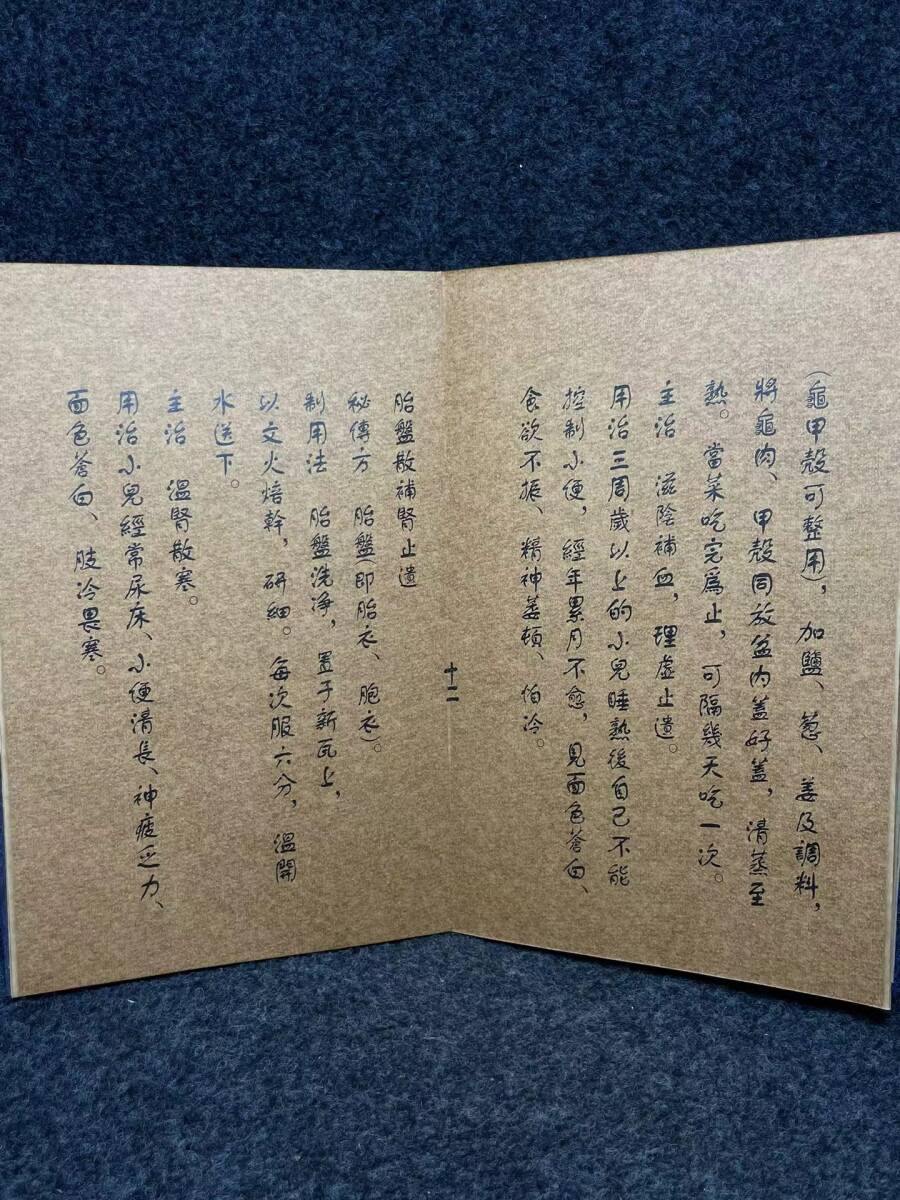 (龜甲殼可整用)，加鹽、葱、姜及調料，
將龜肉、甲殼同放盆内蓋好蓋，清蒸至
熟。當菜吃完爲止，可隔幾天吃一次。
主治　滋陰補血，理虛止遺。
用治三周歲以上的小兒睡熟後自己不能
控制小便，經年累月不愈，見面色蒼白、
食欲不振、精神萎頓、怕冷。
十二
胎盤散補腎止遺
秘傳方　胎盤(即胎衣、胞衣)。
制用法　胎盤洗净，置于新瓦上，
以文火焙幹，研細。每次服六分，溫開
水送下。
主治　溫腎散寒。
用治小兒經常尿床、小便清長、神疲乏力、
面色蒼白、肢冷畏寒。